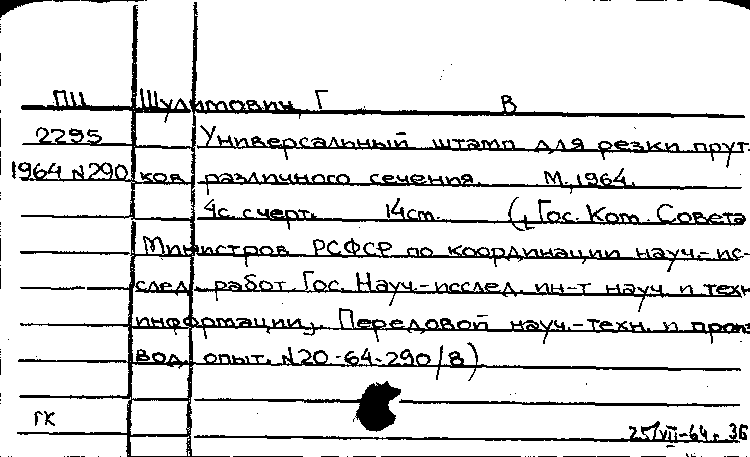 ПЦ Шулимович, Г В
2295 Универсальный штамп для резки прут-
1964 №290 ков различного сечения. М., 1964.
4с. с черт. 14см. (Гос. Ком. Совета
Министров РСФСР по координации науч.-ис-
след. работ Гос. Науч.-исслед. ин-т науч. и техн
информации. Передовой науч.-техн. и произ
вод. опыт. №20-64-290/8)
ГК 25/VII-64г. 36